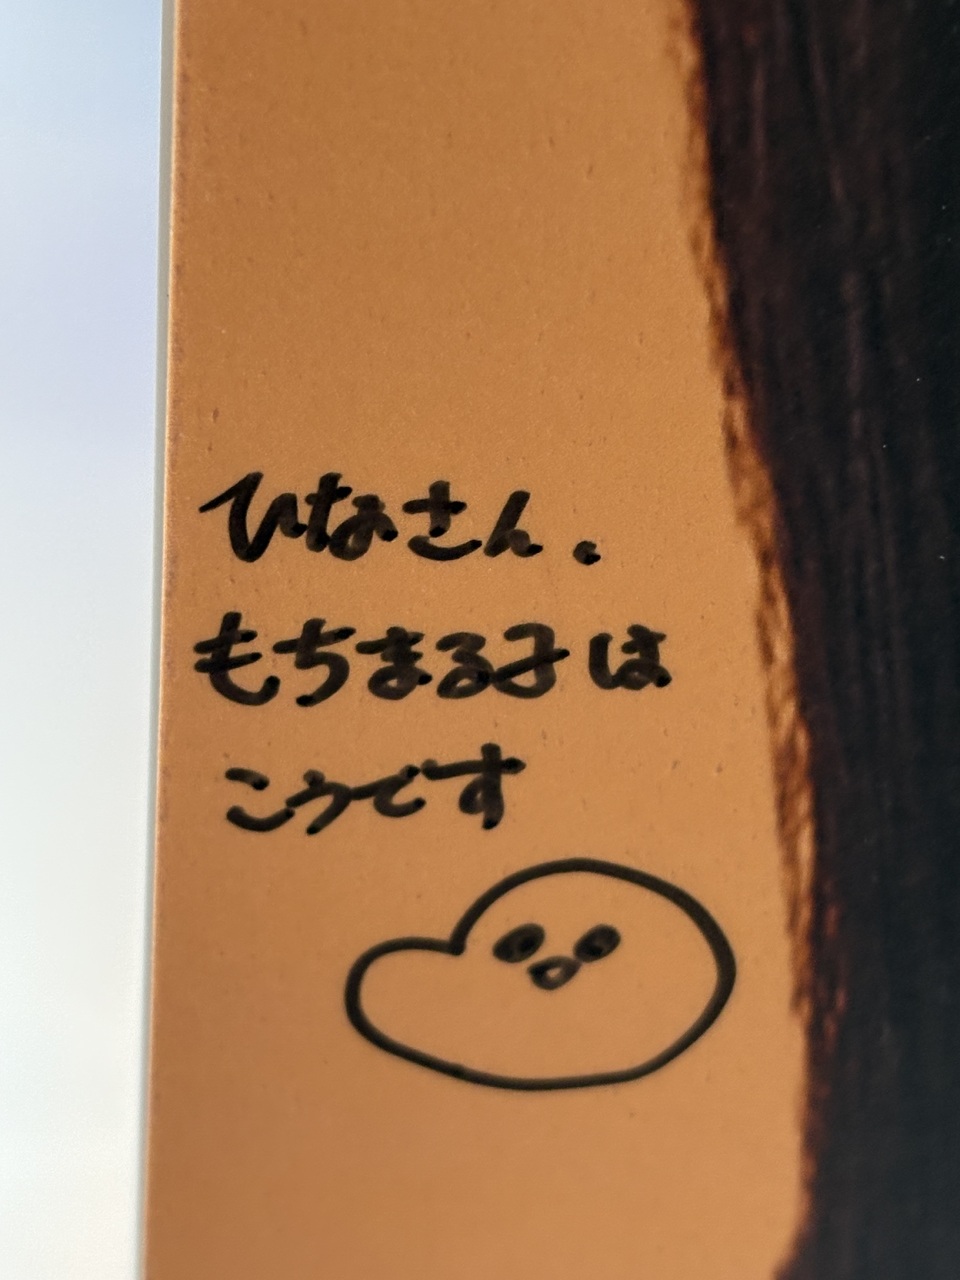 ひなさん。
もちまる子は
こうです